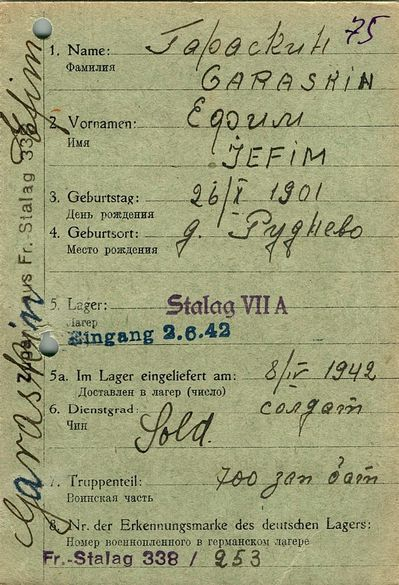 75
1. Name: Гараскин
Фамилия
GARASKIN
2. Vornamen: Ефим
Имя
JEFIM
3. Geburtstag: 26/X 1901
День рождения
4. Geburtsort: д. Руднево
Место рождения
5. Lager: Stalag VII A
Лагер
Eingang 2.6.42
5a. Im Lager eingeliefert am: 8/IV 1942
Доставлен в лагер (число)
6. Dienstgrad: солдат
Чин
Sold.
7. Truppenteil: 700 зап бат
Воинская часть
8. Nr. der Erkennungsmarke des deutschen Lagers:
Номер военнопленного в германском лагере
Fr.-Stalag 338 / 253
Garaskin Jefim
aus Fr. Stalag 338